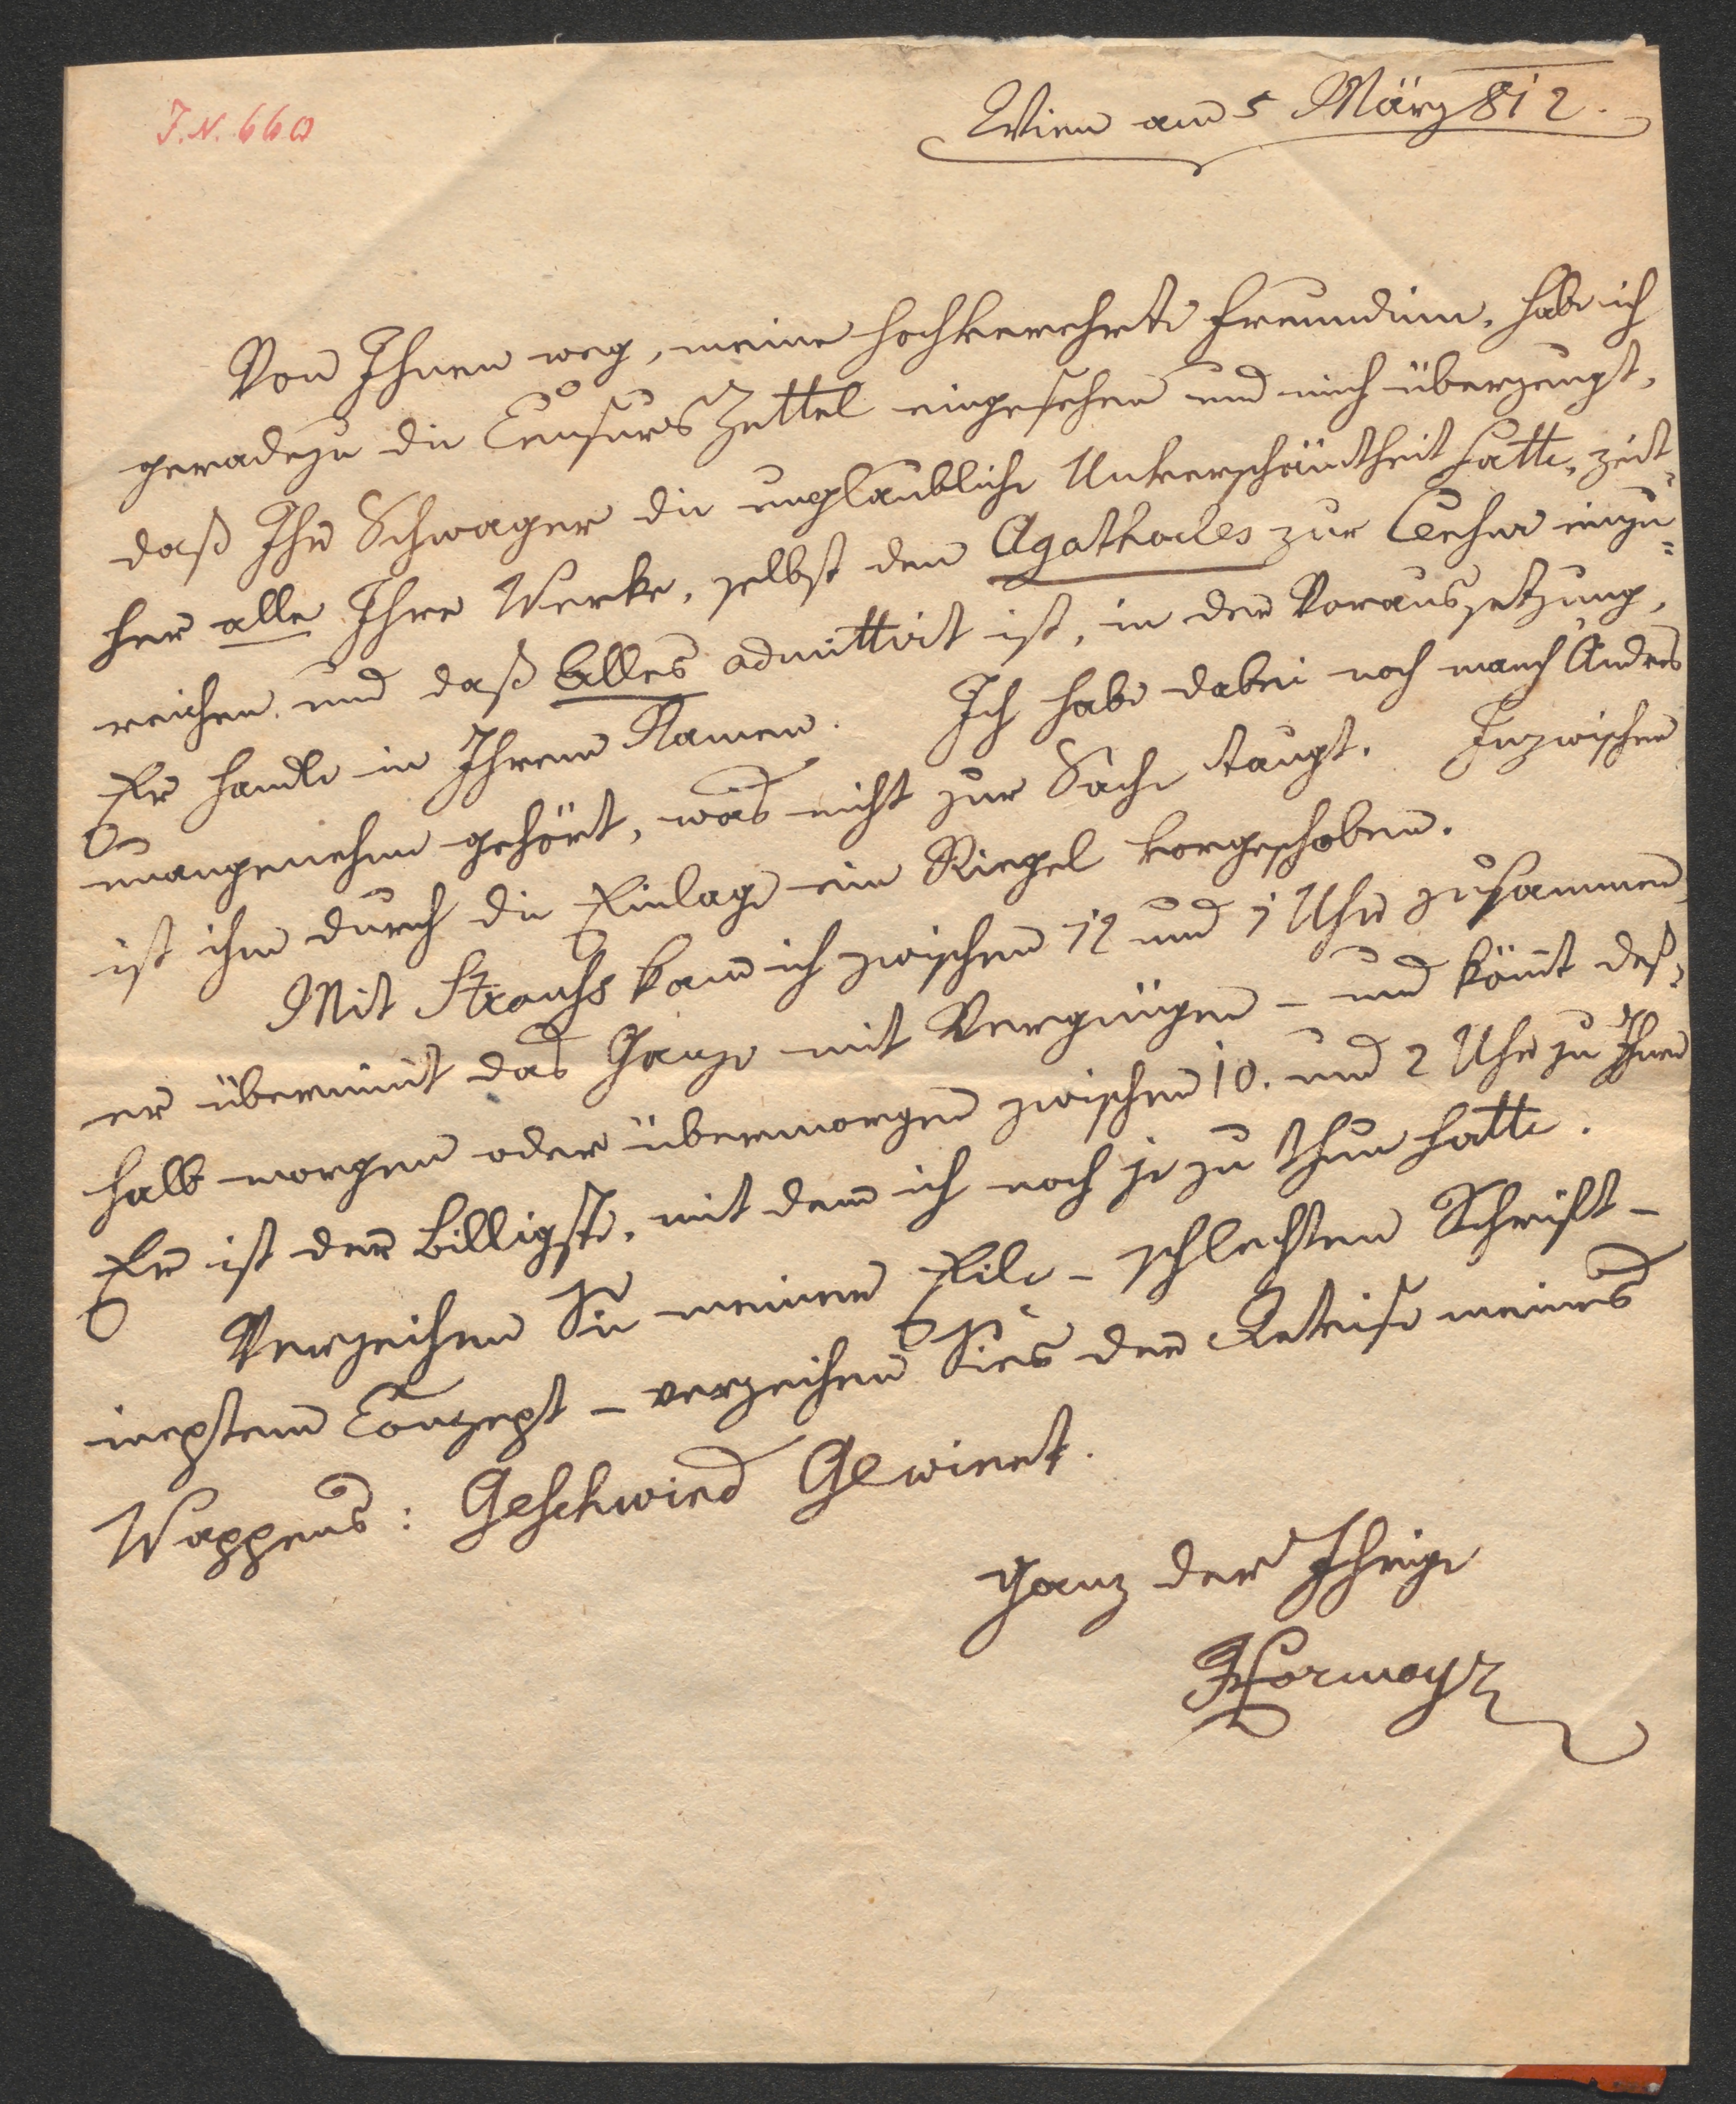 J.N. 660
Wien am 5 März 812.
Von Ihnen weg, meine hochverehrte Freundinn, habe ich
geradezu die Censurs Zettel eingesehen und mich überzeugt,
daß Ihr Schwager die unglaubliche Unverschämtheit hatte, zeit-
her alle Ihre Werke, selbst den Agathocles zur Censur einzu=
reichen, und daß Alles admittirt ist, in der Voraussetzung,
Er handle in Ihrem Namen. Ich habe dabei noch manch' Andres
unangenehm gehört, was nicht zur Sache taugt. Inzwischen
ist ihm durch die Einlage ein Riegel vorgeschoben.
Mit Strauss kam ich zwischen 12 und 1 Uhr zusammen,
er übernimt das Ganze mit Vergnügen – und kömt deß=
halb morgen oder übermorgen zwischen 10. und 2 Uhr zu Ihnen
Er ist der billigste, mit dem ich noch je zu thun hatte.
Verzeihen Sie meiner Eile – schlechten Schrift –
ineptem Conzept – verzeihen Sies der Devise meines
Wappens: Geschwind Gewinnt.
Ganz der Ihrige
Hormayr